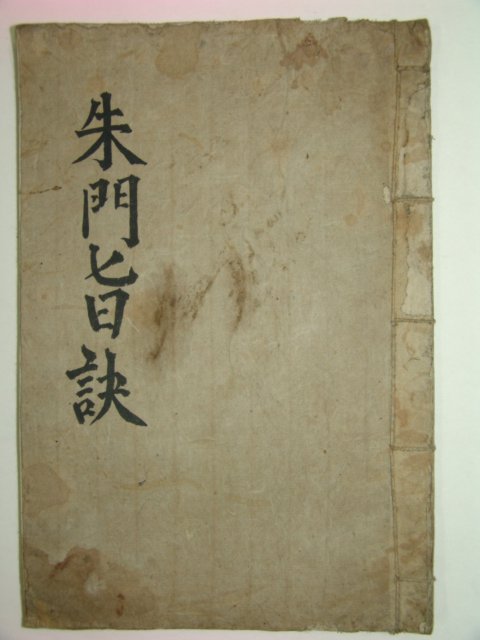 朱門旨訣